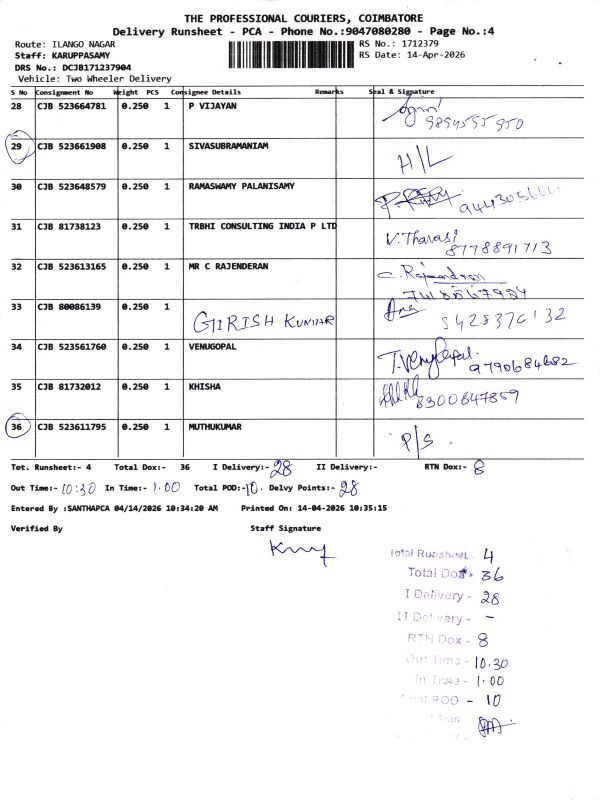 THE PROFESSIONAL COURIERS, COIMBATORE
Delivery Runsheet - PCA - Phone No.:9047080280 - Page No.:4
Route: ILANGO NAGAR RS No.: 1712379
Staff: KARUPPASAMY RS Date: 14-Apr-2026
DRS No.: DCJB171237904
Vehicle: Two Wheeler Delivery
S No Consignment No Weight PCS Consignee Details Remarks Seal & Signature
28 CJB 523664781 0.250 1 P VIJAYAN
9894595950
29 CJB 523661908 0.250 1 SIVASUBRAMANIAM H/L
30 CJB 523648579 0.250 1 RAMASWAMY PALANISAMY
31 CJB 81738123 0.250 1 TRBHI CONSULTING INDIA P LTD V. Tharasi
8778891713
32 CJB 523613165 0.250 1 MR C RAJENDERAN C. Rajendran
33 CJB 80086139 0.250 1 GIRISH KUMAR
34 CJB 523561760 0.250 1 VENUGOPAL T. Venugopal.
9790684682
35 CJB 81732012 0.250 1 KHISHA
8300847859
36 CJB 523611795 0.250 1 MUTHUKUMAR P/S.
Tot. Runsheet:- 4 Total Dox:- 36 I Delivery:- 28 II Delivery:- RTN Dox:- 8
Out Time:- 10:30 In Time:- 1.00 Total POD:- 10. Delvy Points:- 28
Entered By :SANTHAPCA 04/14/2026 10:34:20 AM Printed On: 14-04-2026 10:35:15
Verified By Staff Signature
Total Runsheet - 4
Total Dox - 36
I Delivery - 28
II Delivery - -
RTN Dox - 8
Out Time - 10.30
In Time - 1.00
Total POD - 10